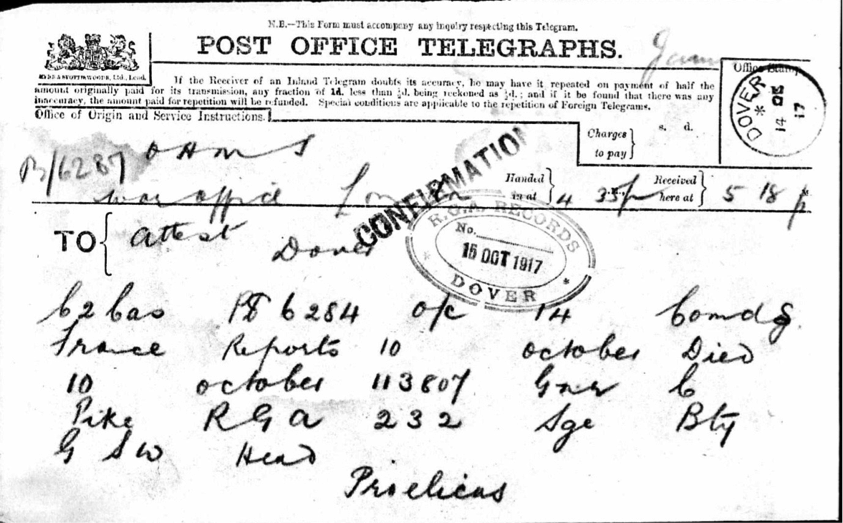 N.B.—This Form must accompany any inquiry respecting this Telegram.
POST OFFICE TELEGRAPHS.
If the Receiver of an Inland Telegram doubts its accuracy, he may have it repeated on payment of half the
amount originally paid for its transmission, any fraction of 1d. less than ½d. being reckoned as ½d.; and if it be found that there was any
inaccuracy, the amount paid for repetition will be refunded. Special conditions are applicable to the repetition of Foreign Telegrams.
Office of Origin and Service Instructions.
Office Stamp
DOVER
14 OC
17
Charges to pay
s. d.
B/6287 OHMS
War office London
CONFIRMATION
Handed in at 4 35 p
Received here at 5 18 p
TO Attest
Dover
R.G.A. RECORDS
No.
15 OCT 1917
DOVER
C2 Cas PB 6284 o/c 14 Comdg
France Reports 10 october Died
10 october 113807 Gnr C
Pike R G A 232 Sge Bty
G S W Head